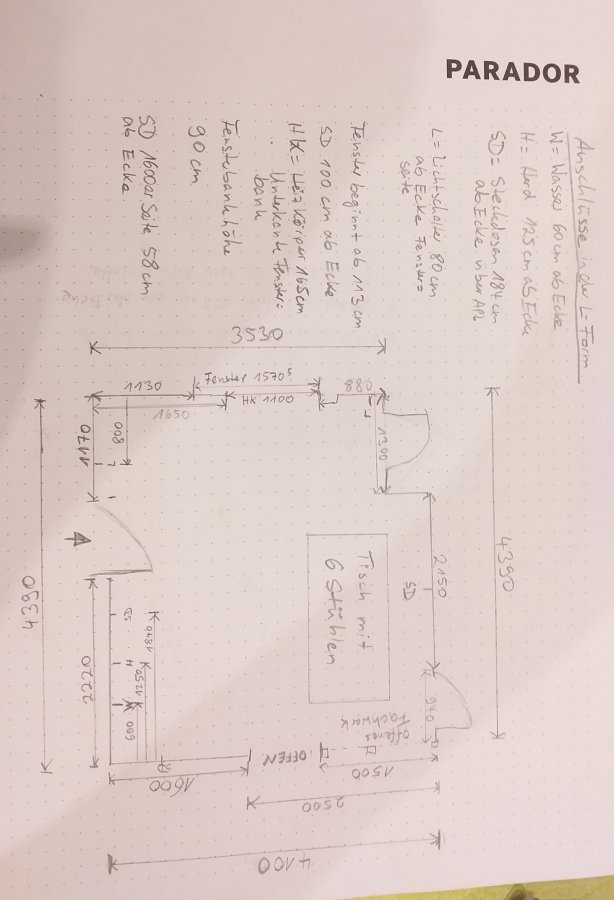 PARADOR
Anschlüsse in der L-Form
W= Wasser 60 cm ab Ecke
H = Herd 125 cm ab Ecke
SD = Steckdosen 184 cm
ab Ecke über APL
L = Lichtschalter 80 cm
ab Ecke Fenster=
seite
Fenster beginnt ab 113 cm
SD 100 cm ab Ecke
HK = Heizkörper 165 cm
Unterkante Fenster=
bank
Fensterbankhöhe
90 cm
SD 1600er Seite 58 cm
ab Ecke
3530
1130
Fenster 1570⁵
880
1650
HK 1100
L
1170
800
1300
4390
2150
SD
Tisch mit
6 Stühlen
940
offenes
Fachwerk
4390
2220
SD
1840
H
1250
W
600
1600
OFFEN
1500
2500
4100